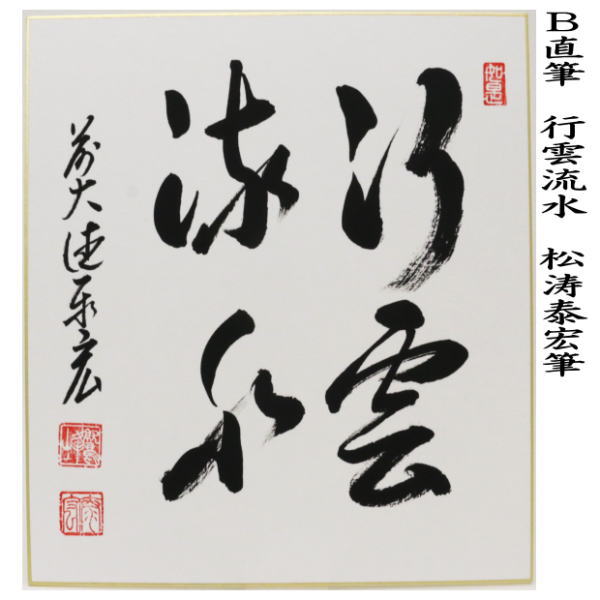 B直筆　行雲流水　松涛泰宏筆
如是
行雲
流水
前大徳泰宏